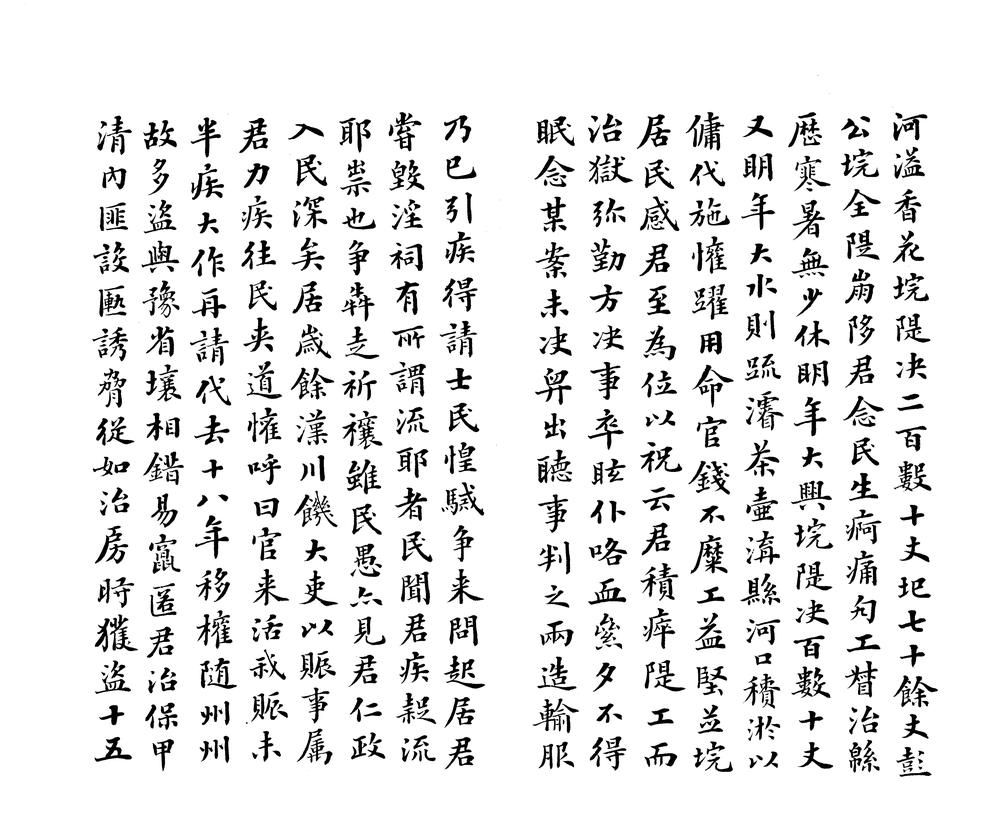 河溢香花垸隄决二百數十丈圯七十餘丈彭
公垸全隄崩陊君念民生痾痛匄工朁治緜
歷寒暑無少休明年大興垸隄决百數十丈
又明年大水則疏濬茶壷濸縣河口積淤以
傭代施懽躍用命官錢不糜工益堅並垸
居民感君至為位以祝云君積瘁隄工而
治獄弥勤方决事卒眩仆咯血絫夕不得
眠念某案未决舁出聽事判之兩造輸服
乃已引疾得請士民惶駴争来問起居君
嘗毀淫祠有所謂流耶者民聞君疾疑流
耶祟也争犇走祈禳雖民愚亦見君仁政
入民深矣居歲餘漢川饑大吏以賑事属
君力疾往民夾道懽呼曰官来活我賑未
半疾大作再請代去十八年移權随州州
故多盜與豫省壤相錯易竄匿君治保甲
清內匪設匭誘脅從如治房時獲盜十五